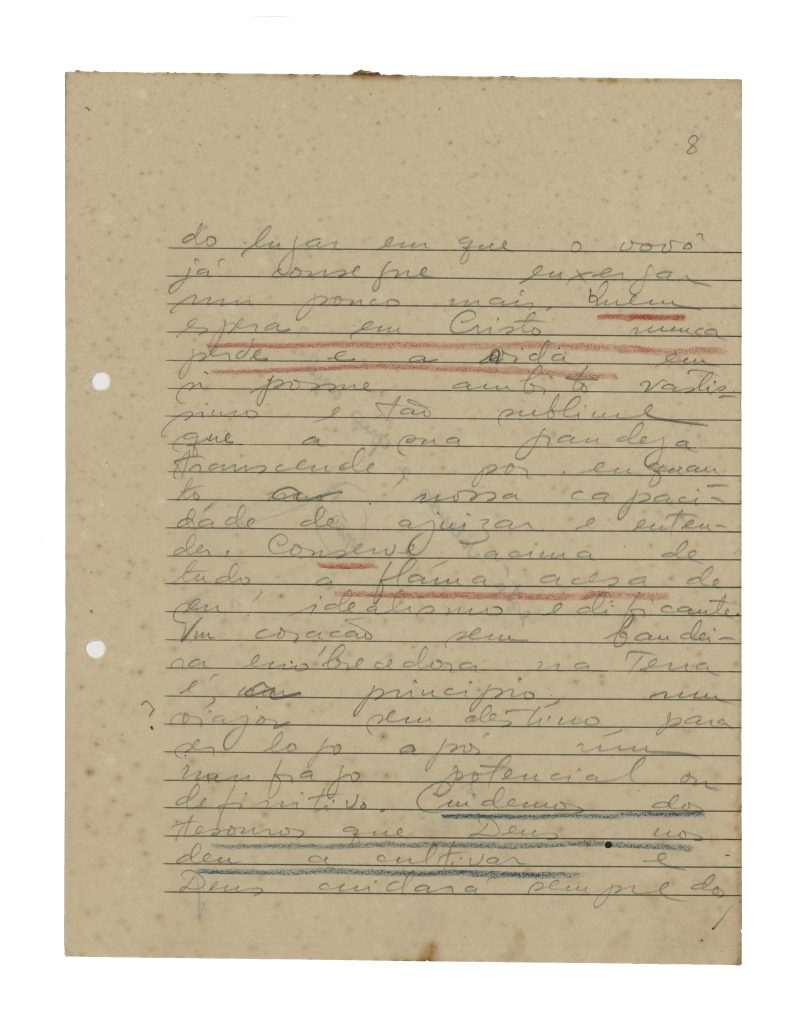 8
do lugar em que o vovô
já consegue enxergar
um pouco mais. Quem
espera em Cristo nunca
perde e a vida em
si possue ambito vastis-
simo e tão sublime
que a sua grandeza
transcende, por enquan-
to nossa capaci-
dade de ajuizar e enten-
der. Conserve acima de
tudo a flama acesa de
seu idealismo edificante.
Um coração sem bandei-
ra enobrecedora na Terra
é, em principio, um
? viajor sem destino para
ser logo após um
naufrago potencial ou
definitivo. Cuidemos dos
tesouros que Deus nos
deu a cultivar e
Deus cuidará sempre do